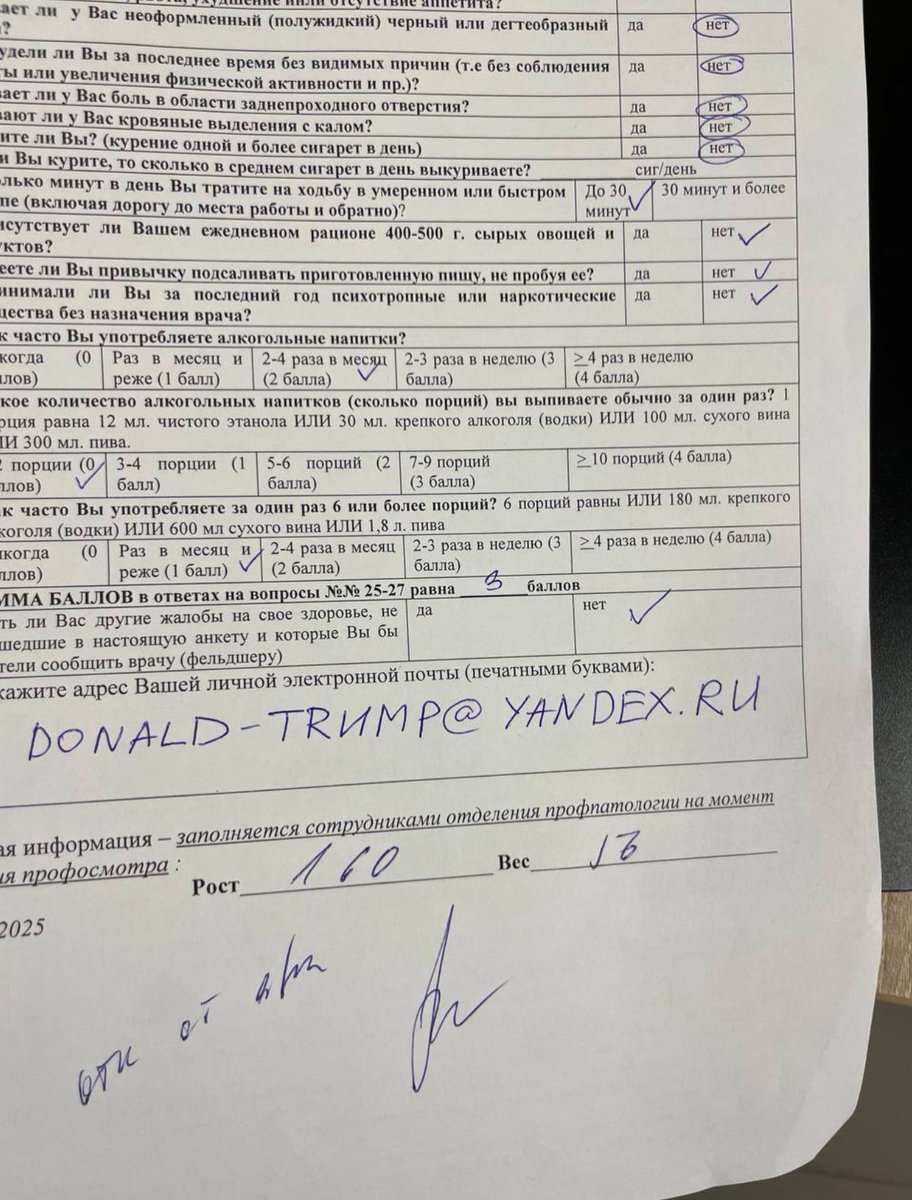 ает ли у Вас неоформленный (полужидкий) черный или дегтеобразный да нет
?
удели ли Вы за последнее время без видимых причин (т.е без соблюдения да нет
ты или увеличения физической активности и пр.)?
вает ли у Вас боль в области заднепроходного отверстия? да нет
вают ли у Вас кровяные выделения с калом? да нет
ите ли Вы? (курение одной и более сигарет в день) да нет
и Вы курите, то сколько в среднем сигарет в день выкуриваете? сиг/день
олько минут в день Вы тратите на ходьбу в умеренном или быстром До 30 30 минут и более
пе (включая дорогу до места работы и обратно)? минут
исутствует ли Вашем ежедневном рационе 400-500 г. сырых овощей и да нет
уктов?
еете ли Вы привычку подсаливать приготовленную пищу, не пробуя ее? да нет
инимали ли Вы за последний год психотропные или наркотические да нет
щества без назначения врача?
к часто Вы употребляете алкогольные напитки?
когда (0 Раз в месяц и 2-4 раза в месяц 2-3 раза в неделю (3 ≥ 4 раз в неделю
ллов) реже (1 балл) (2 балла) балла) (4 балла)
кое количество алкогольных напитков (сколько порций) вы выпиваете обычно за один раз? 1
рция равна 12 мл. чистого этанола ИЛИ 30 мл. крепкого алкоголя (водки) ИЛИ 100 мл. сухого вина
ЛИ 300 мл. пива.
2 порции (0 3-4 порции (1 5-6 порций (2 7-9 порций ≥10 порций (4 балла)
ллов) балл) балла) (3 балла)
ак часто Вы употребляете за один раз 6 или более порций? 6 порций равны ИЛИ 180 мл. крепкого
коголя (водки) ИЛИ 600 мл сухого вина ИЛИ 1,8 л. пива
икогда (0 Раз в месяц и 2-4 раза в месяц 2-3 раза в неделю (3 ≥ 4 раза в неделю (4 балла)
ллов) реже (1 балл) (2 балла) балла)
ММА БАЛЛОВ в ответах на вопросы №№ 25-27 равна 3 баллов
ть ли Вас другие жалобы на свое здоровье, не да нет
шедшие в настоящую анкету и которые Вы бы
тели сообщить врачу (фельдшеру)
кажите адрес Вашей личной электронной почты (печатными буквами):
DONALD-TRUMP@YANDEX.RU
ая информация – заполняется сотрудниками отделения профпатологии на момент
ия профосмотра :
Рост 160 Вес
2025